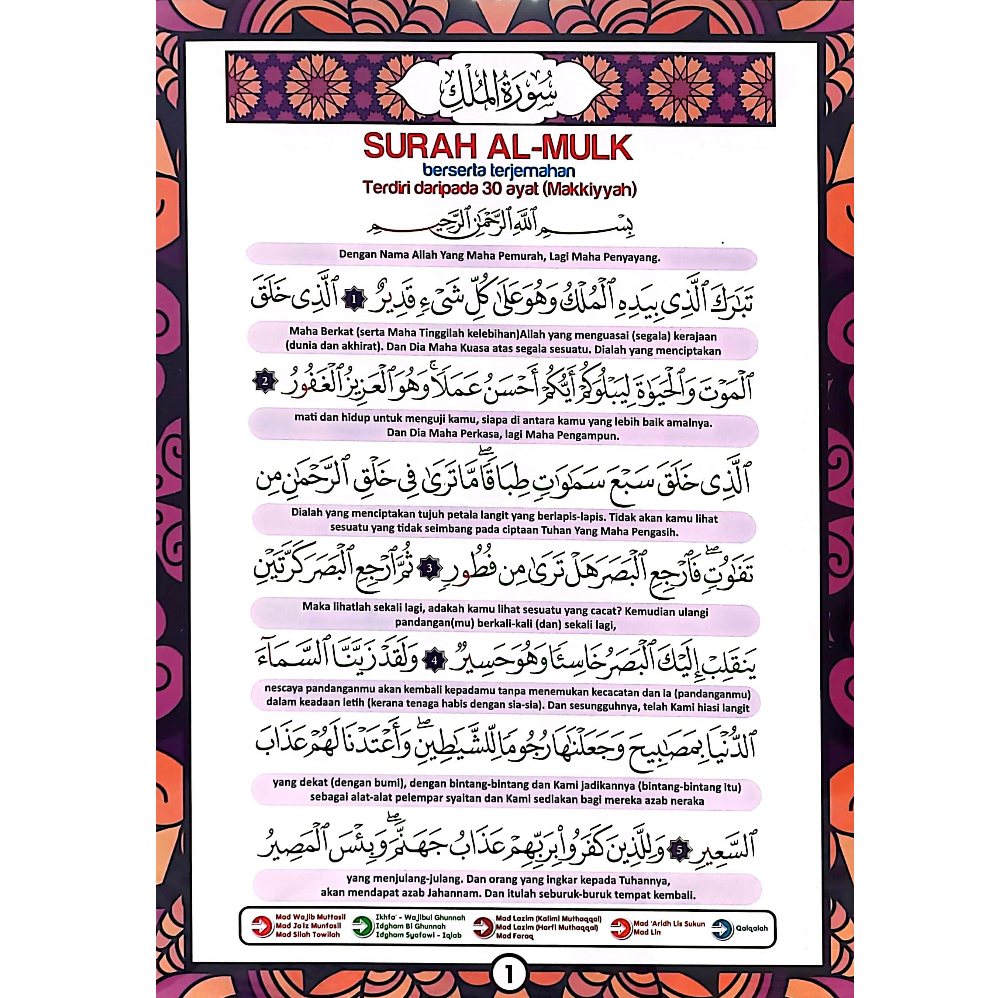 سُورَةُ الْمُلْكِ
SURAH AL-MULK
berserta terjemahan
Terdiri daripada 30 ayat (Makkiyyah)
بِسْمِ ٱللَّهِ ٱلرَّحْمَٰنِ ٱلرَّحِيمِ
Dengan Nama Allah Yang Maha Pemurah, Lagi Maha Penyayang.
تَبَٰرَكَ ٱلَّذِى بِيَدِهِ ٱلْمُلْكُ وَهُوَ عَلَىٰ كُلِّ شَىْءٍ قَدِيرٌ 1 ٱلَّذِى خَلَقَ
Maha Berkat (serta Maha Tinggilah kelebihan)Allah yang menguasai (segala) kerajaan
(dunia dan akhirat). Dan Dia Maha Kuasa atas segala sesuatu. Dialah yang menciptakan
ٱلْمَوْتَ وَٱلْحَيَوٰةَ لِيَبْلُوَكُمْ أَيُّكُمْ أَحْسَنُ عَمَلًا ۚ وَهُوَ ٱلْعَزِيزُ ٱلْغَفُورُ 2
mati dan hidup untuk menguji kamu, siapa di antara kamu yang lebih baik amalnya.
Dan Dia Maha Perkasa, lagi Maha Pengampun.
ٱلَّذِى خَلَقَ سَبْعَ سَمَٰوَٰتٍ طِبَاقًا ۖ مَّا تَرَىٰ فِى خَلْقِ ٱلرَّحْمَٰنِ مِن
Dialah yang menciptakan tujuh petala langit yang berlapis-lapis. Tidak akan kamu lihat
sesuatu yang tidak seimbang pada ciptaan Tuhan Yang Maha Pengasih.
تَفَٰوُتٍ ۖ فَٱرْجِعِ ٱلْبَصَرَ هَلْ تَرَىٰ مِن فُطُورٍ 3 ثُمَّ ٱرْجِعِ ٱلْبَصَرَ كَرَّتَيْنِ
Maka lihatlah sekali lagi, adakah kamu lihat sesuatu yang cacat? Kemudian ulangi
pandangan(mu) berkali-kali (dan) sekali lagi,
يَنقَلِبْ إِلَيْكَ ٱلْبَصَرُ خَاسِئًا وَهُوَ حَسِيرٌ 4 وَلَقَدْ زَيَّنَّا ٱلسَّمَآءَ
nescaya pandanganmu akan kembali kepadamu tanpa menemukan kecacatan dan ia (pandanganmu)
dalam keadaan letih (kerana tenaga habis dengan sia-sia). Dan sesungguhnya, telah Kami hiasi langit
ٱلدُّنْيَا بِمَصَٰبِيحَ وَجَعَلْنَٰهَا رُجُومًا لِّلشَّيَٰطِينِ ۖ وَأَعْتَدْنَا لَهُمْ عَذَابَ
yang dekat (dengan bumi), dengan bintang-bintang dan Kami jadikannya (bintang-bintang itu)
sebagai alat-alat pelempar syaitan dan Kami sediakan bagi mereka azab neraka
ٱلسَّعِيرِ 5 وَلِلَّذِينَ كَفَرُوا۟ بِرَبِّهِمْ عَذَابُ جَهَنَّمَ ۖ وَبِئْسَ ٱلْمَصِيرُ
yang menjulang-julang. Dan orang yang ingkar kepada Tuhannya,
akan mendapat azab Jahanam. Dan itulah seburuk-buruk tempat kembali.
Mad Wajib Muttasil
Mad Ja'iz Munfasil
Mad Silah Towilah
Ikhfa' - Wajibul Ghunnah
Idgham Bi Ghunnah
Idgham Syafawi - Iqlab
Mad Lazim (Kalimi Muthaqqal)
Mad Lazim (Harfi Muthaqqal)
Mad Faraq
Mad 'Aridh Lis Sukun
Mad Lin
Qalqalah
1